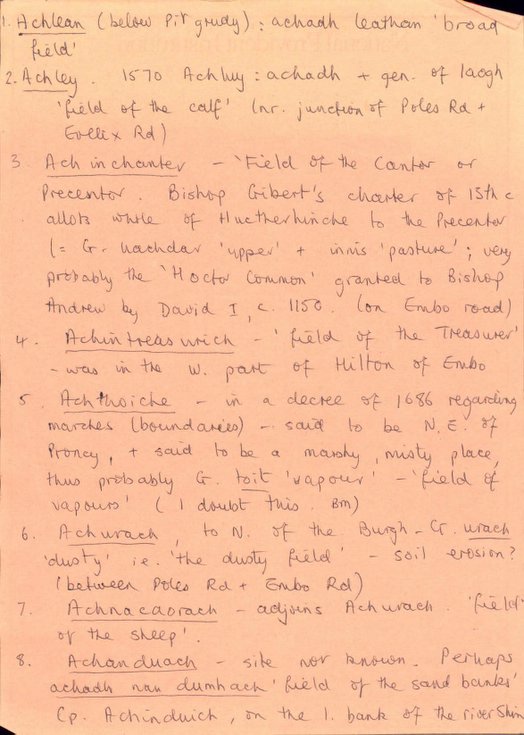 1. Achlean (below Pitgrudy): achadh leathan 'broad
field'
2. Achley. 1570 Achluy: achadh + gen. of laogh
'field of the calf' (nr. junction of Poles Rd +
Evelix Rd)
3. Achinchanter - 'Field of the Cantor or
Precentor. Bishop Gibert's charter of 13th c
allots whole of Huctherhinche to the Precentor
(= G. uachdar 'upper' + innis 'pasture'; very
probably the 'Hoctor Common' granted to Bishop
Andrew by David I, c. 1150. (on Embo road)
4. Achintreasurich - 'field of the Treasurer'
- was in the w. part of Hilton of Embo
5. Achthoiche - in a decree of 1686 regarding
marches (boundaries) - said to be N.E. of
Proncy, + said to be a marshy, misty place,
thus probably G. toit 'vapour' - 'field of
vapours' (I doubt this. BM)
6. Achurach, to N. of the Burgh - G. urach
'dusty' ie. 'the dusty field' - soil erosion?
(between Poles Rd + Embo Rd)
7. Achnacaorach - adjoins Achurach. 'field
of the sheep'.
8. Achanduach - site not known. Perhaps
achadh nan dumhach 'field of the sand banks'
Cp. Achinduich, on the l. bank of the river Shin